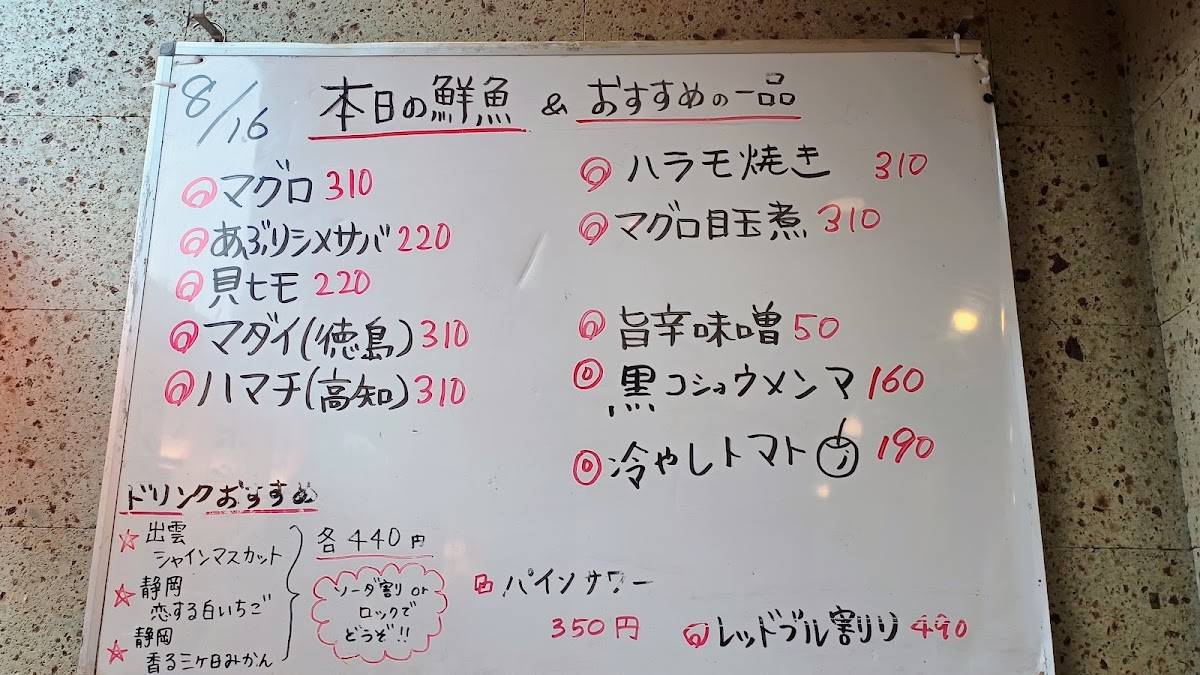 8/16
本日の鮮魚 & おすすめの一品
マグロ 310
あぶりシメサバ 220
貝ヒモ 220
マダイ(徳島) 310
ハマチ(高知) 310
ハラモ焼き 310
マグロ目玉煮 310
旨辛味噌 50
黒コショウメンマ 160
冷やしトマト 190
ドリンクおすすめ
☆ 出雲
シャインマスカット
☆ 静岡
恋する白いちご
☆ 静岡
香る三ヶ日みかん
各440円
ソーダ割り or
ロックで
どうぞ!!
パインサワー
350円
レッドブル割り 490